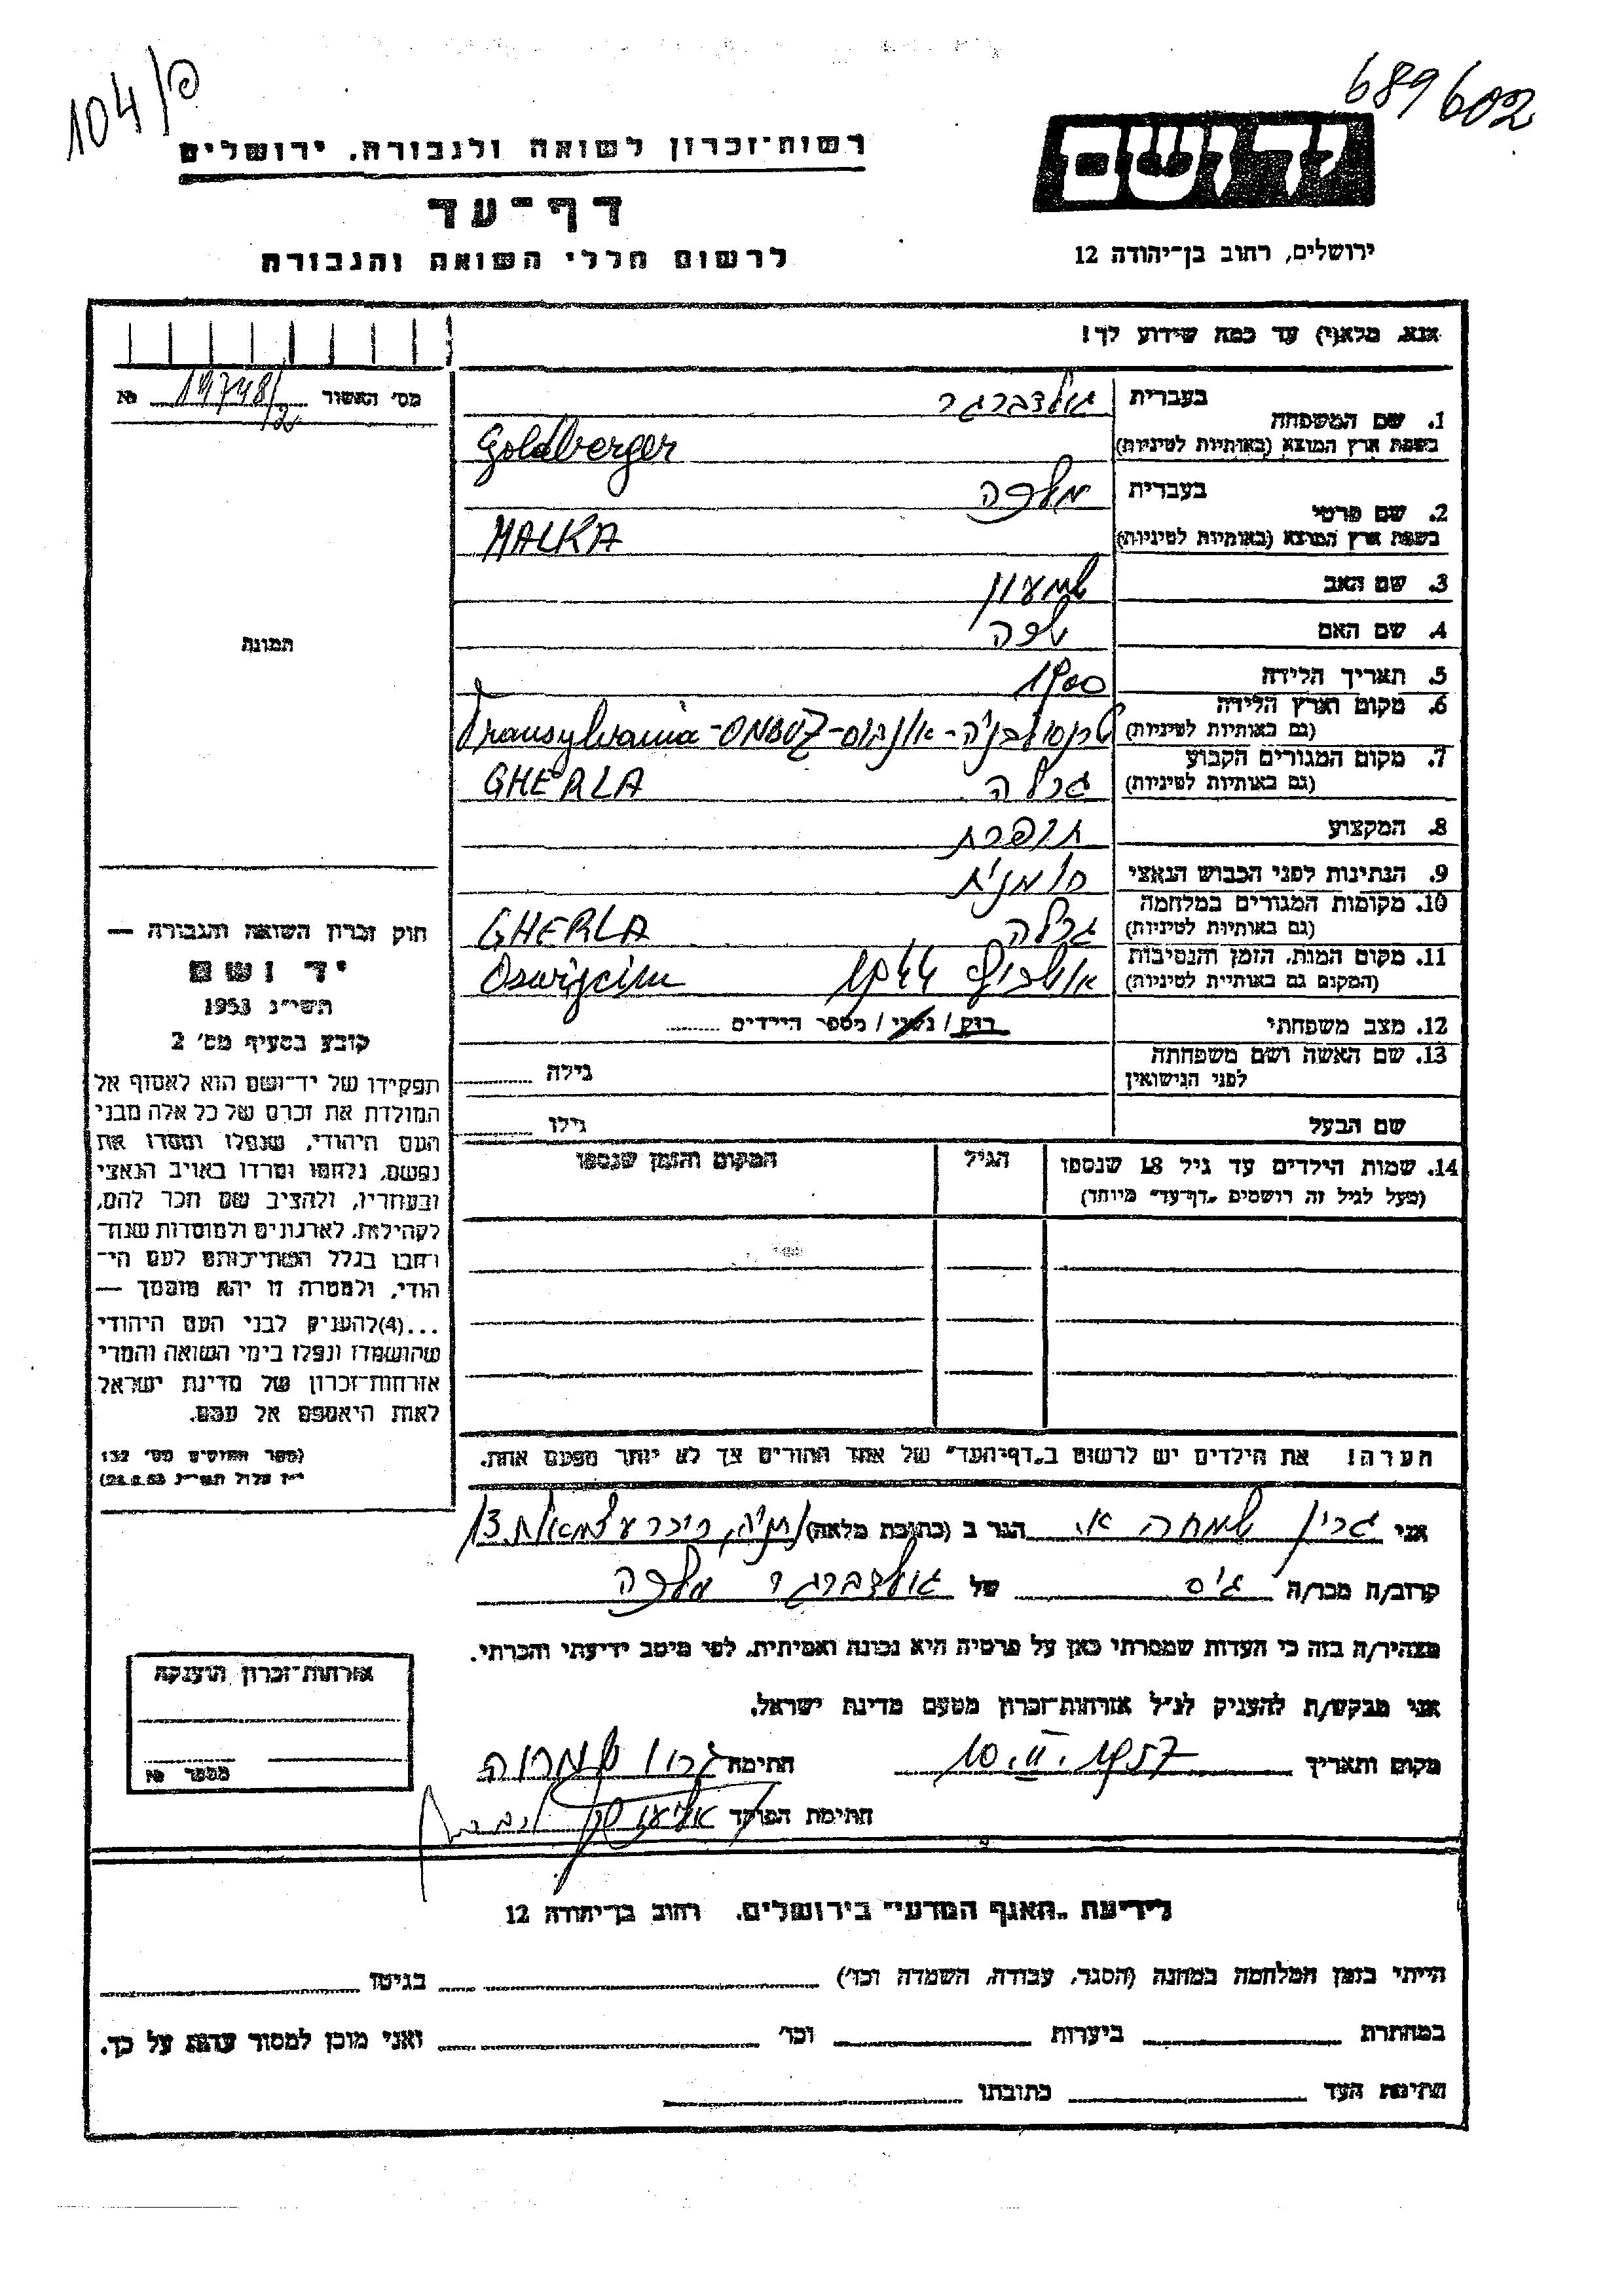 104/פ
689602
רשות־זכרון לשואה ולגבורה, ירושלים
יד ושם
דף־עד
לרשום חללי השואה והגבורה
ירושלים, רחוב בן־יהודה 12
אנא, מלא(י) עד כמה שידוע לך!
מס׳ האשור №
1. שם המשפחה
בעברית גולדברגר
בשפת ארץ המוצא (באותיות לטיניות) Goldberger
2. שם פרטי
בעברית מלכה
בשפת ארץ המוצא (באותיות לטיניות) MALKA
3. שם האב שמעון
4. שם האם
5. תאריך הלידה 1900
6. מקום וארץ הלידה
(גם באותיות לטיניות) Transylvania
7. מקום המגורים הקבוע
(גם באותיות לטיניות) גרלה GHERLA
8. המקצוע תופרת
9. הנתינות לפני הכבוש הנאצי רומנית
10. מקומות המגורים במלחמה
(גם באותיות לטיניות) גרלה GHERLA
11. מקום המות, הזמן והנסיבות
(המקום גם באותיות לטיניות) 1944
12. מצב משפחתי רוק / נשוי / מספר הילדים
13. שם האשה ושם משפחתה
לפני הנישואין גילה
שם הבעל גילו
14. שמות הילדים עד גיל 18 שנספו הגיל המקום והזמן שנספו
(מעל לגיל זה רושמים „דף־עד״ מיוחד)
תמונה
חוק זכרון השואה והגבורה —
יד ושם
תשי״ג 1953
קובע בסעיף מס׳ 2
תפקידו של יד־ושם הוא לאסוף אל
המולדת את זכרם של כל אלה מבני
העם היהודי, שנפלו ומסרו את
נפשם, נלחמו ומרדו באויב הנאצי
ובעוזריו, ולהציב שם וזכר להם,
לקהילות, לארגונים ולמוסדות שנח־
רבו בגלל השתייכותם לעם הי־
הודי, ולמטרה זו יהא מוסמך —
...(4) להעניק לבני העם היהודי
שהושמדו ונפלו בימי השואה והמרי
אזרחות־זכרון של מדינת ישראל
לאות היאספם אל עמם.
(ספר החוקים מס׳ 132
י״ז אלול תשי״ג 28.8.53)
הערה! את הילדים יש לרשום ב„דף־העד״ של אחד ההורים אך לא יותר מפעם אחת.
אני גרין שמחה א. הגר ב (כתובת מלאה)
קרוב/ה מכר/ה גיס של גולדברגר מלכה
מצהיר/ה בזה כי העדות שמסרתי כאן על פרטיה היא נכונה ואמיתית, לפי מיטב ידיעתי והכרתי.
אני מבקש/ת להעניק לנ״ל אזרחות־זכרון מטעם מדינת ישראל.
מקום ותאריך 10.II.1957 חתימה
חתימת הפוקד
אזרחות־זכרון הוענקה
מספר №
לידיעת „האגף המדעי״ בירושלים, רחוב בן־יהודה 12
הייתי בזמן המלחמה במחנה (הסגר, עבודה, השמדה וכו׳) בגיטו
במחתרת ביערות וכו׳ ואני מוכן למסור עדות על כך.
חתימת העד כתובתו